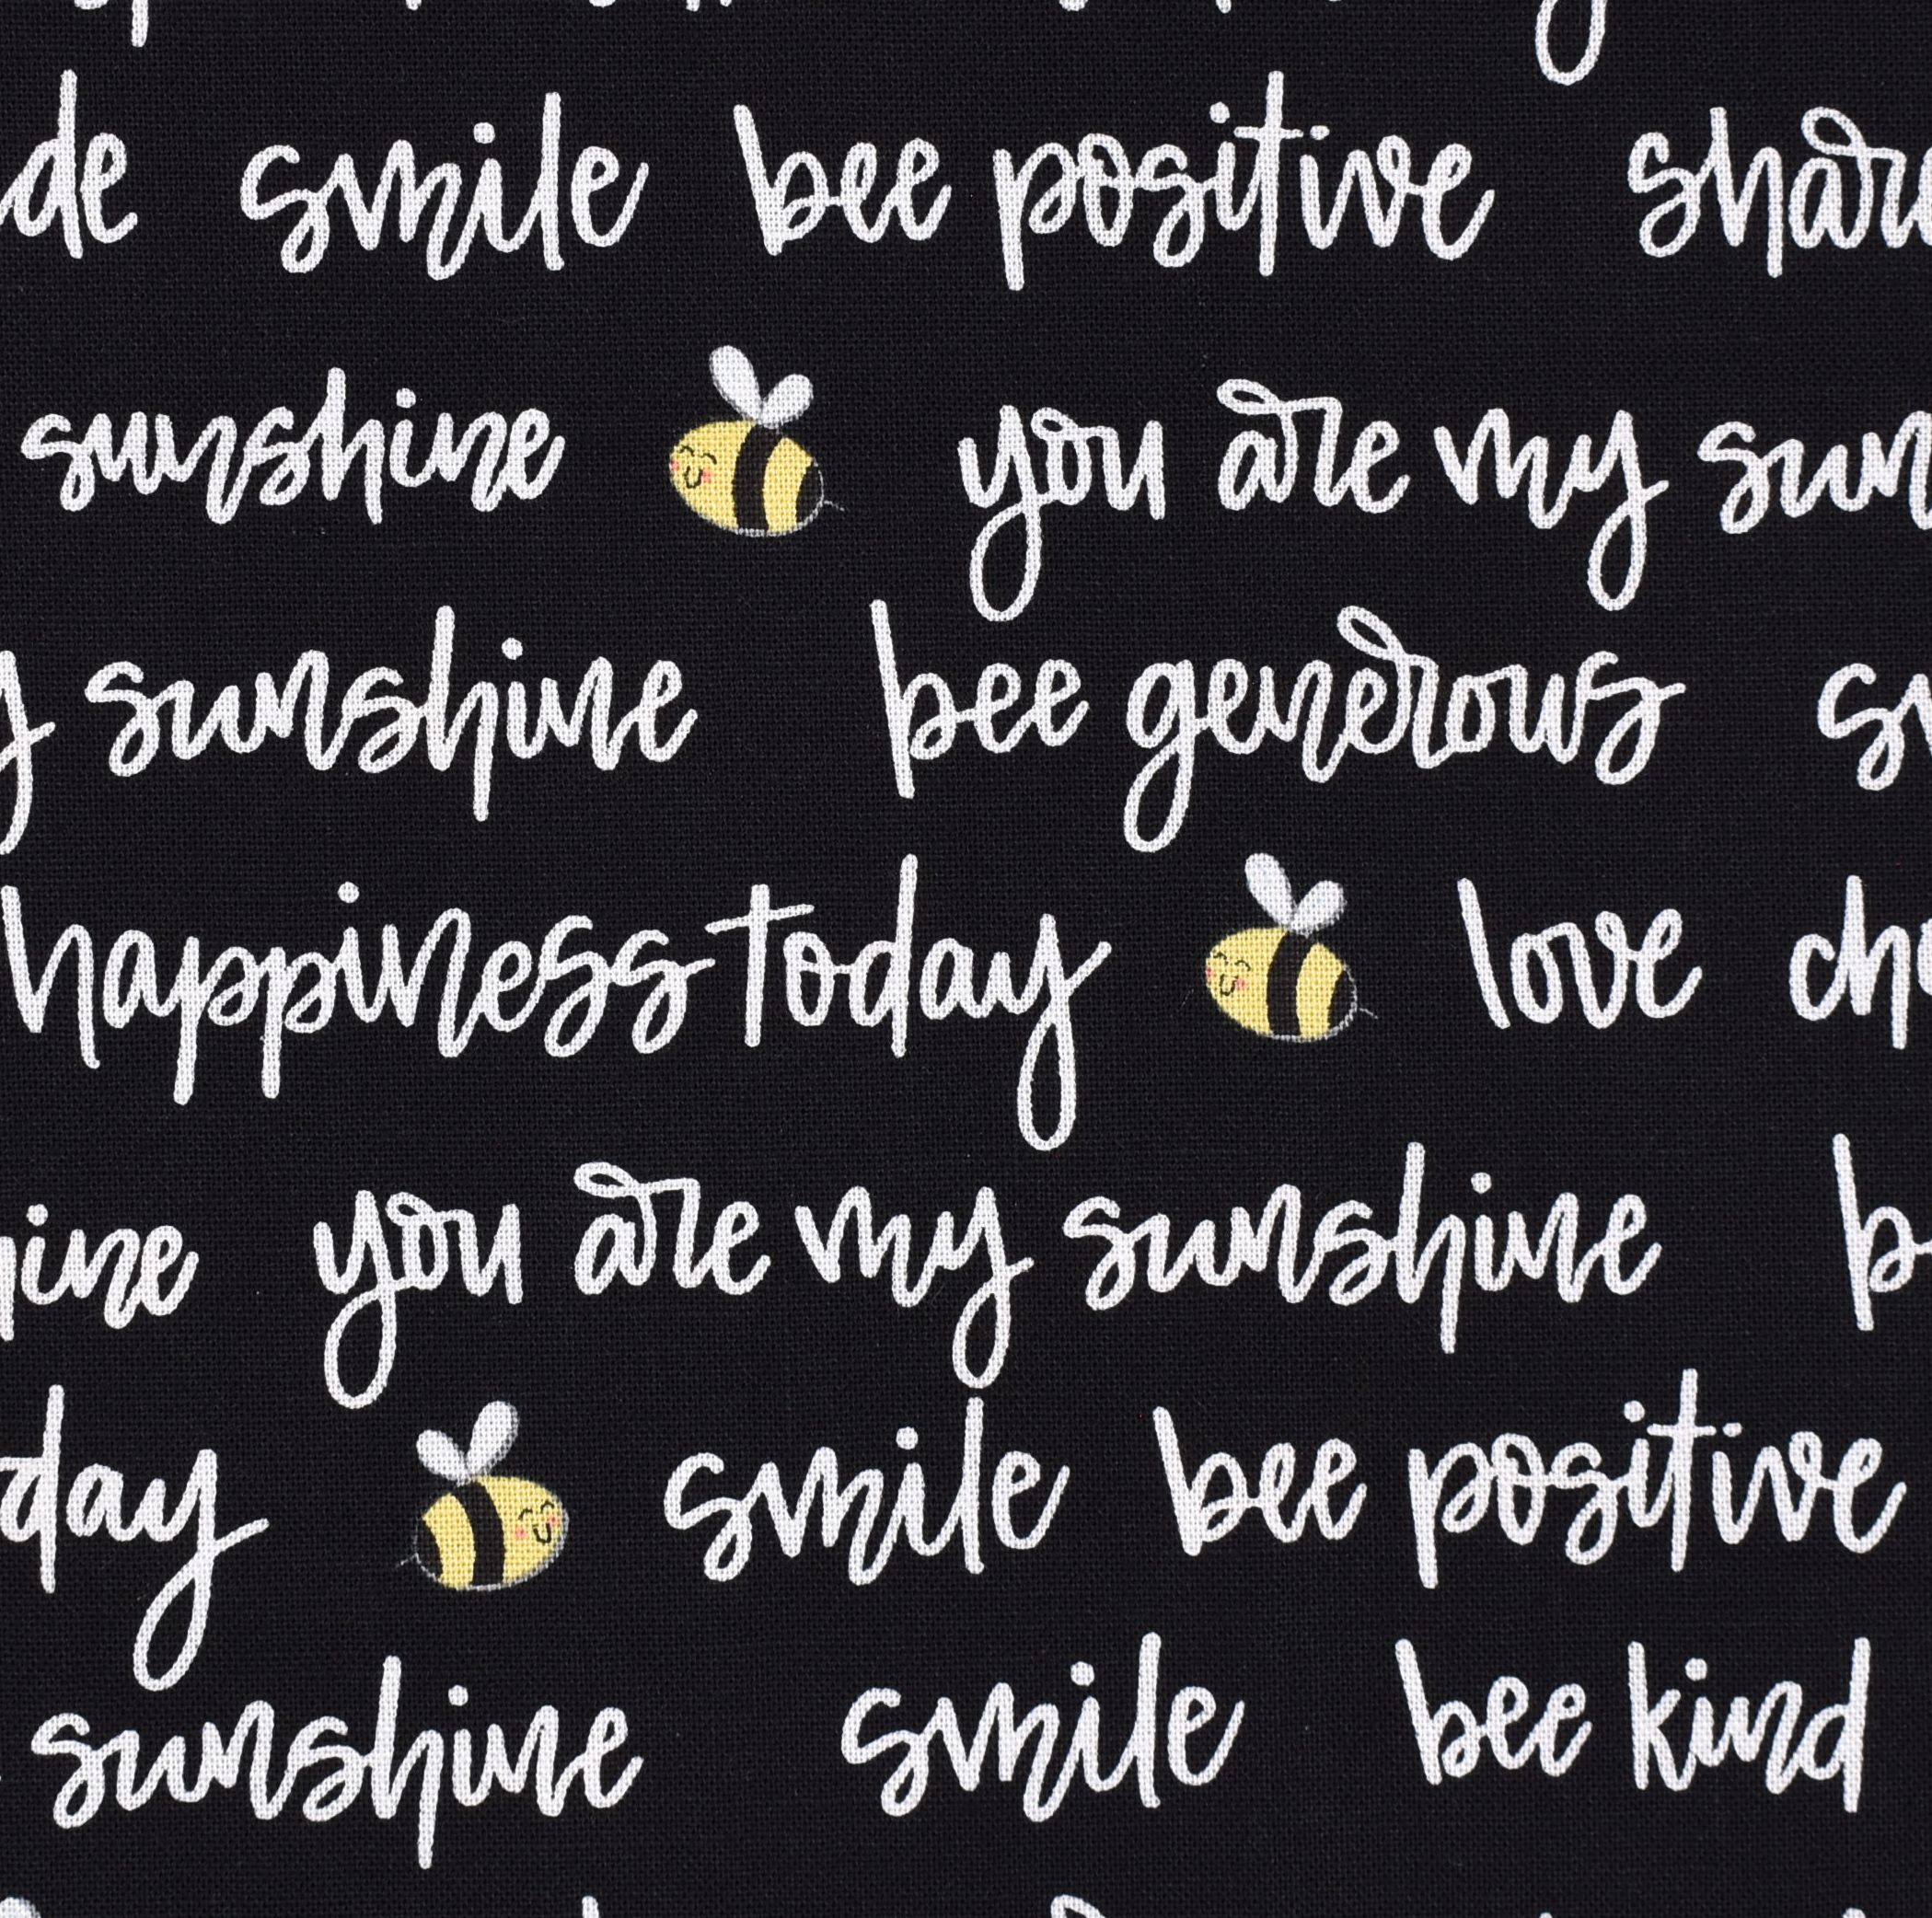 de smile bee positive shar
sunshine you are my sun
y sunshine bee generous s
happiness today love ch
ine you are my sunshine b
day smile bee positive
sunshine smile bee kind